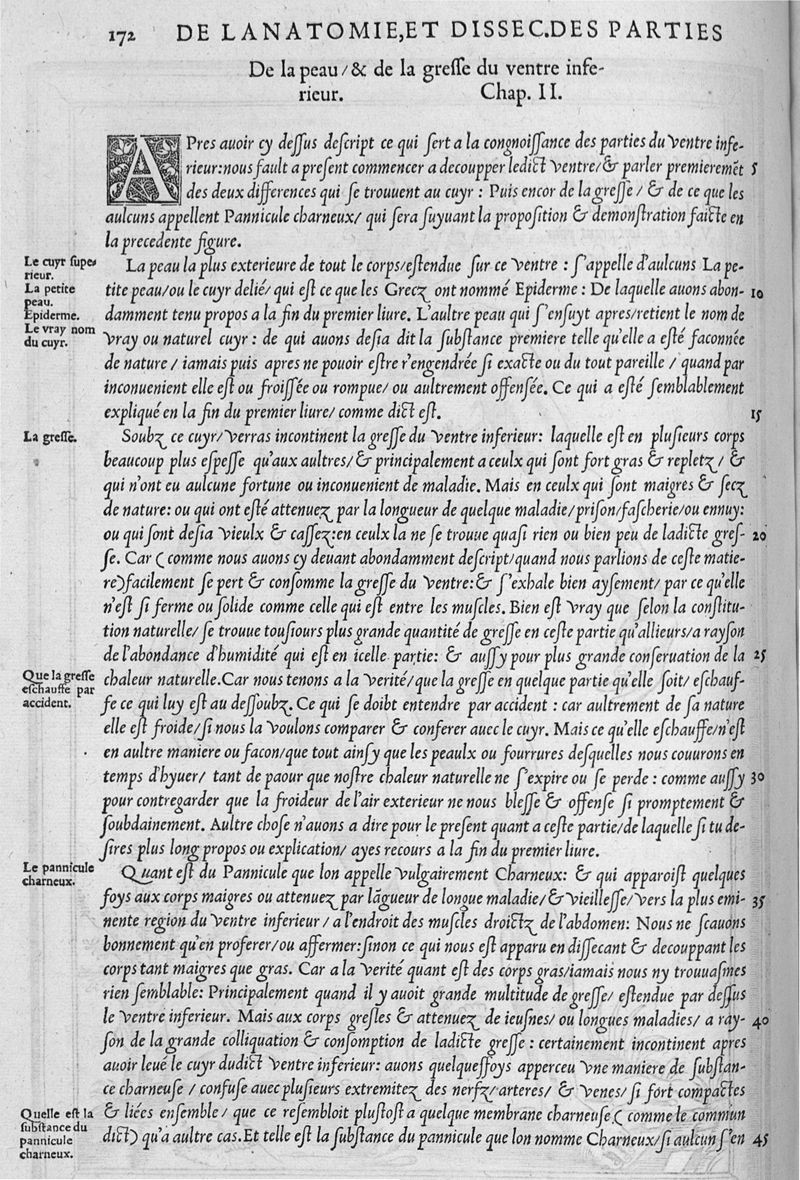 172 DE LANATOMIE,ET DISSEC.DES PARTIES
De la peau/& de la gresse du ventre infe-
rieur. Chap. II.
APres auoir cy dessus descript ce qui sert a la congnoissance des parties du Ventre infe-
rieur:nous fault a present commencer a decoupper ledict Ventre/& parler premieremẽt 5
des deux differences qui se trouuent au cuyr : Puis encor de la gresse / & de ce que les
aulcuns appellent Pannicule charneux/ qui sera suyuant la proposition & demonstration faicte en
la precedente figure.
Le cuyr supe-
rieur.
La petite
peau.
Epiderme.
Le vray nom
du cuyr.
La peau la plus exterieure de tout le corps/estendue sur ce Ventre : s'appelle d'aulcuns La pe-
tite peau/ou le cuyr delié/ qui est ce que les Grecz ont nommé Epiderme : De laquelle auons abon- 10
damment tenu propos a la fin du premier liure. L'aultre peau qui s'ensuyt apres/retient le nom de
Vray ou naturel cuyr : de qui auons desia dit la substance premiere telle qu'elle a esté faconnée
de nature / iamais puis apres ne pouoir estre r'engendrée si exacte ou du tout pareille / quand par
inconuenient elle est ou froissée ou rompue/ ou aultrement offensée. Ce qui a esté semblablement
expliqué en la fin du premier liure/ comme dict est. 15
La gresse.
Soubz ce cuyr/ Verras incontinent la gresse du Ventre inferieur: laquelle est en plusieurs corps
beaucoup plus espesse qu'aux aultres/& principalement a ceulx qui sont fort gras & repletz/ &
qui n'ont eu aulcune fortune ou inconuenient de maladie. Mais en ceulx qui sont maigres & secz
de nature: ou qui ont esté attenuez par la longueur de quelque maladie/prison/fascherie/ou ennuy:
ou qui sont desia Vieulx & cassez:en ceulx la ne se trouue quasi rien ou bien peu de ladicte gres- 20
se. Car ( comme nous auons cy deuant abondamment descript/quand nous parlions de ceste matie-
re)facilement se pert & consomme la gresse du Ventre:& s'exhale bien aysement/ par ce qu'elle
n'est si ferme ou solide comme celle qui est entre les muscles. Bien est Vray que selon la constitu-
tion naturelle/ se trouue tousiours plus grande quantité de gresse en ceste partie qu'allieurs/a rayson
de l'abondance d'humidité qui est en icelle partie: & aussy pour plus grande conseruation de la 25
Que la gresse
eschauffe par
accident.
chaleur naturelle.Car nous tenons a la Verité/que la gresse en quelque partie qu'elle soit/ eschauf-
fe ce qui luy est au dessoubz. Ce qui se doibt entendre par accident : car aultrement de sa nature
elle est froide/si nous la Voulons comparer & conferer auec le cuyr. Mais ce qu'elle eschauffe/n'est
en aultre maniere ou facon/que tout ainsy que les peaulx ou fourrures desquelles nous couurons en
temps d'hyuer/ tant de paour que nostre chaleur naturelle ne s'expire ou se perde : comme aussy 30
pour contregarder que la froideur de l'air exterieur ne nous blesse & offense si promptement &
soubdainement. Aultre chose n'auons a dire pour le present quant a ceste partie/de laquelle si tu de-
sires plus long propos ou explication/ ayes recours a la fin du premier liure.
Le pannicule
charneux.
Quant est du Pannicule que lon appelle Vulgairement Charneux: & qui apparoist quelques
foys aux corps maigres ou attenuez par lãgueur de longue maladie/& Vieillesse/Vers la plus emi- 35
nente region du Ventre inferieur / a l'endroit des muscles droictz de l'abdomen: Nous ne scauons
bonnement qu'en proferer/ou affermer:sinon ce qui nous est apparu en dissecant & decouppant les
corps tant maigres que gras. Car a la Verité quant est des corps gras/iamais nous ny trouuasmes
rien semblable: Principalement quand il y auoit grande multitude de gresse/ estendue par dessus
le Ventre inferieur. Mais aux corps gresles & attenuez de ieusnes/ ou longues maladies/ a ray- 40
son de la grande colliquation & consomption de ladicte gresse : certainement incontinent apres
auoir leué le cuyr dudict Ventre inferieur: auons quelquesfoys apperceu Vne maniere de substan-
ce charneuse / confuse auec plusieurs extremitez des nerfz/arteres/ & Venes/ si fort compactes
Quelle est la
substance du
pannicule
charneux.
& liées ensemble/ que ce resembloit plustost a quelque membrane charneuse ( comme le commun
dict) qu'a aultre cas.Et telle est la substance du pannicule que lon nomme Charneux/si aulcun s'en 45